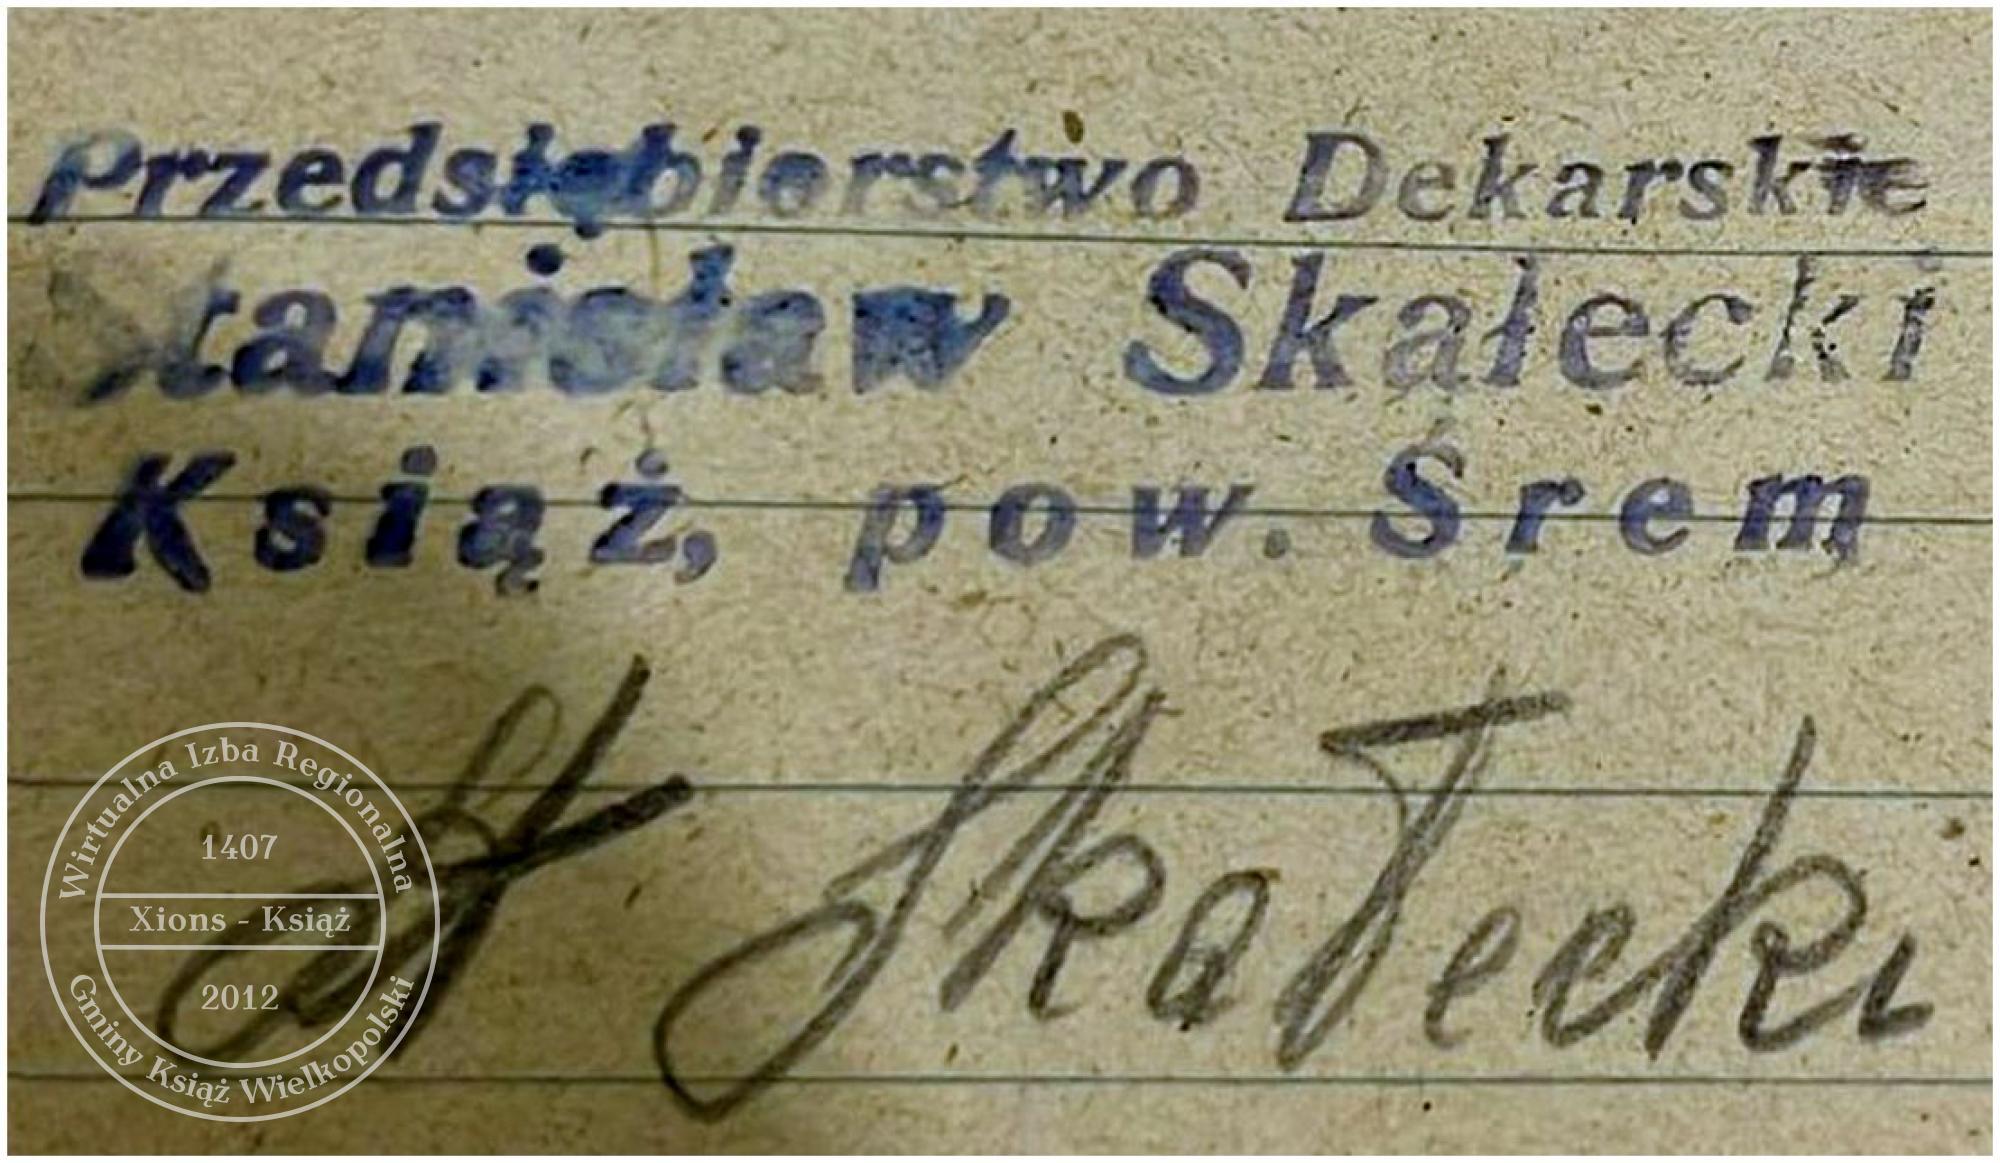 Przedsiębiorstwo Dekarskie
Stanisław Skałecki
Książ, pow. Śrem
St Skałecki
Wirtualna Izba Regionalna
1407
Xions - Książ
2012
Gminy Książ Wielkopolski